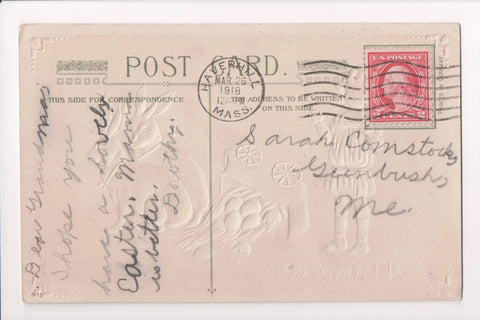 POST CARD.
THIS SIDE FOR CORRESPONDENCE.
THE ADDRESS TO BE WRITTEN
ON THIS SIDE.
HAVERHILL
MAR 26
1918
MASS.
U.S. POSTAGE
Dear Grandma
I hope you
have a lovely
Easter. Mama
is better.
Dorothy.
Sarah Comstock,
Greenbush,
Me.